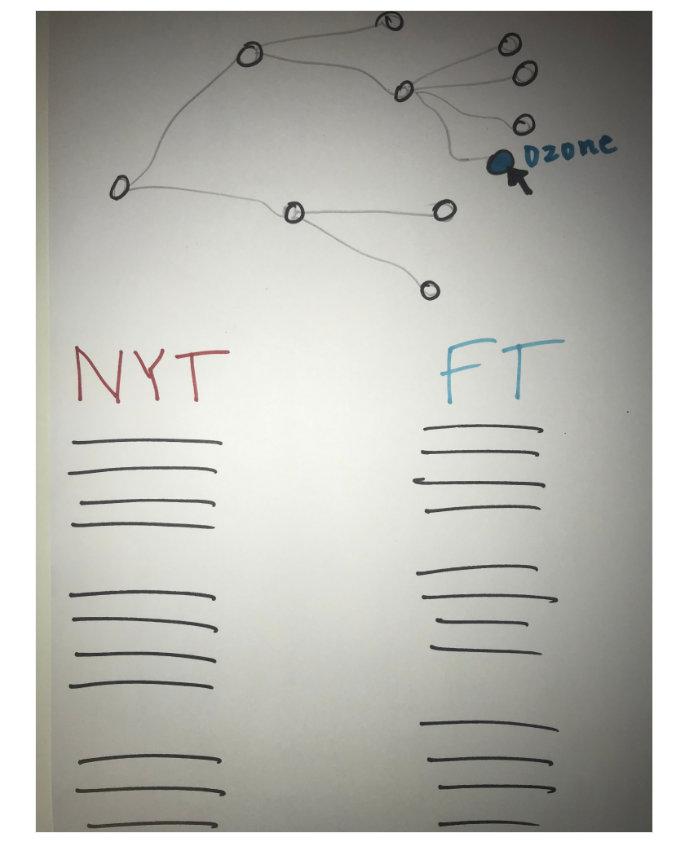 Ozone
NYT
FT